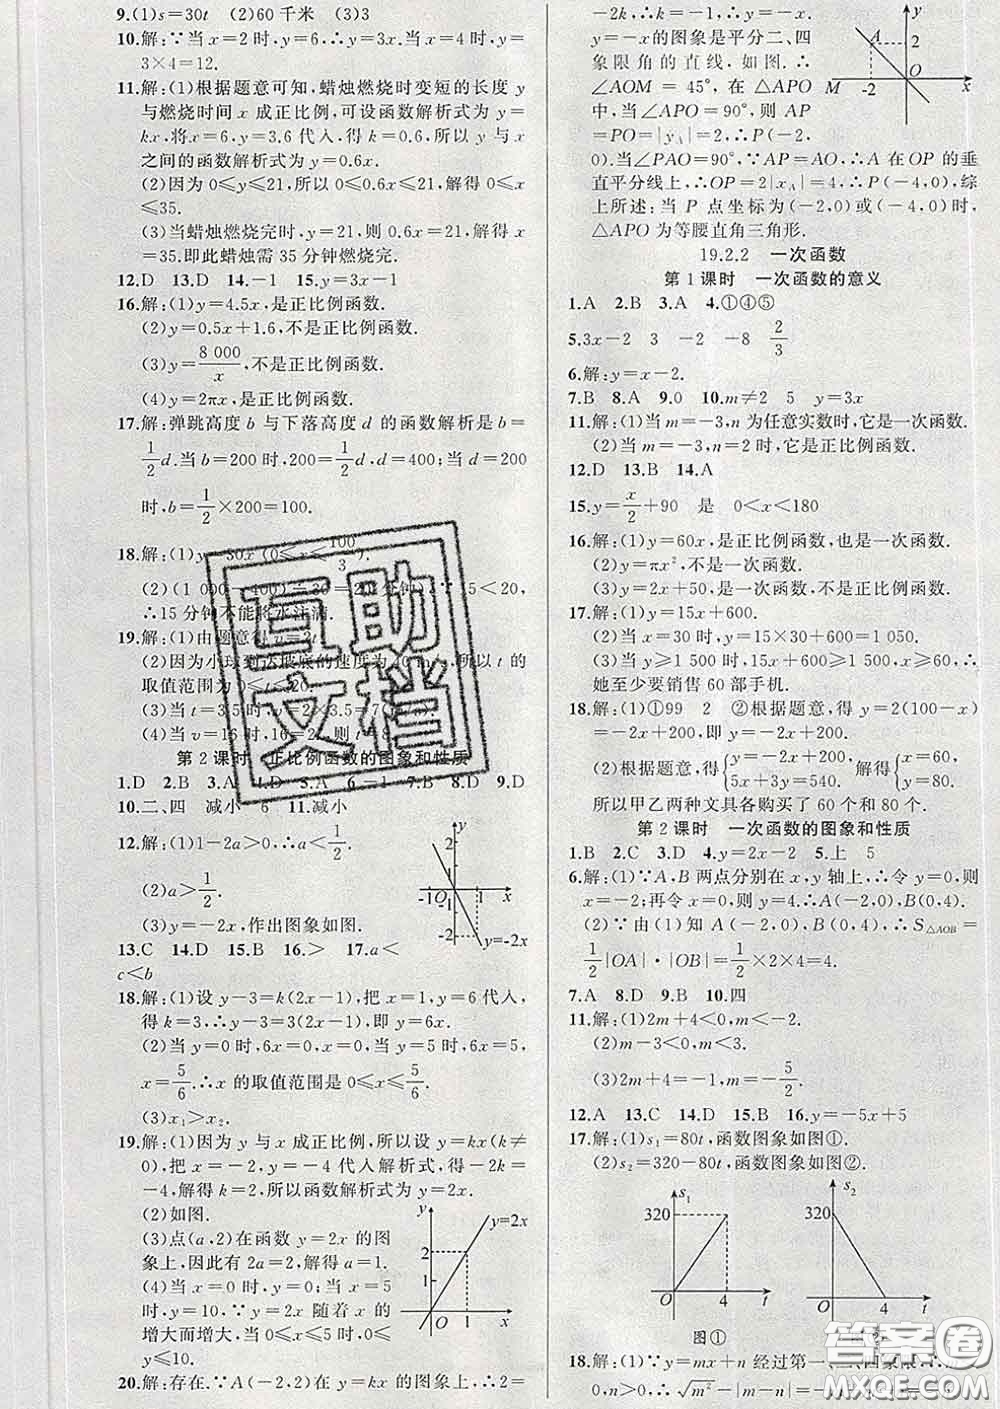 9.(1)s=30t (2)60千米 (3)3
10.解:∵当x=2时,y=6,∴k=3.当x=4时,y=
3×4=12.
11.解:(1)根据题意可知,蜡烛燃烧时变短的长度y
与燃烧时间x成正比例,可设函数解析式为y=
kx,将x=6,y=3.6代入,得k=0.6,所以y与x
之间的函数解析式为y=0.6x.
(2)因为0≤y≤21,所以0≤0.6x≤21,解得0≤x
≤35.
(3)当蜡烛燃烧完时,y=21,所以0.6x=21,解得
x=35.即此蜡烛需35分钟燃烧完.
12.D 13.D 14.-1 15.y=3x-1
16.解:(1)y=4.5x,是正比例函数.
(2)y=0.5x+1.6,不是正比例函数.
(3)y=8 000/x,不是正比例函数.
(4)y=2πx,是正比例函数.
17.解:弹跳高度b与下落高度d的函数解析是b=
1/2d.当b=200时,200=1/2d,d=400;当d=200
时,b=1/2×200=100.
18.解:(1)y=30x(0≤x≤100/3)
(2)(1 000-400)÷30=20(分钟),∵15<20,
∴15分钟不能将水注满.
19.解:(1)由题意得v=2t.
(2)因为小球到达坡底的速度为40 m/s,所以t的
取值范围为0≤t≤20.
(3)当t=3.5时,v=2×3.5=7(
(4)当v=16时,16=2t,则t=8.
第2课时 正比例函数的图象和性质
1.D 2.B 3.A 4.D 5.A 6.-1 7.B 8.D 9.D
10.二、四 减小 6 11.减小
12.解:(1)1-2a>0,∴a<1/2.
(2)a>1/2.
(3)y=-2x,作出图象如图.
y
2
1
-1 O 1 x
-1
-2
y=-2x
13.C 14.D 15.B 16.> 17.a<
c<b
18.解:(1)设y-3=k(2x-1),把x=1,y=6代入,
得k=3,∴y-3=3(2x-1),即y=6x.
(2)当y=0时,6x=0,x=0,当y=5时,6x=5,
x=5/6.∴x的取值范围是0≤x≤5/6.
(3)x₁>x₂.
19.解:(1)因为y与x成正比例,所以设y=kx(k≠
0),把x=-2,y=-4代入解析式,得-2k=
-4,解得k=2,所以函数解析式为y=2x.
(2)如图.
(3)点(a,2)在函数y=2x的图
象上,因此有2a=2,解得a=1.
(4)当x=0时,y=0;当x=5
时,y=10,∵y=2x随着x的
增大而增大,当0≤x≤5时,0≤
y≤10.
y
y=2x
2
1
O 1 x
20.解:存在.∵A(-2,2)在y=kx的图象上,∴2=
-2k,∴k=-1,∴y=-x.
y=-x的图象是平分二、四
象限角的直线,如图.∴
∠AOM=45°,在△APO
中,当∠APO=90°,则AP
=PO=|y_A|=2,∴P(-2,
0).当∠PAO=90°,∵AP=AO,∴A在OP的垂
直平分线上,∴OP=2|x_A|=4,∴P(-4,0),综
上所述:当P点坐标为(-2,0)或(-4,0)时,
△APO为等腰直角三角形.
y
A 2
O
M -2 x
19.2.2 一次函数
第1课时 一次函数的意义
1.A 2.B 3.A 4.①④⑤
5.3x-2 3 -2 -8 2/3
6.解:y=x-2.
7.B 8.A 9.0 10.m≠2 5 y=3x
11.解:(1)当m=-3,n为任意实数时,它是一次函数.
(2)当m=-3,n=2时,它是正比例函数.
12.D 13.B 14.A
15.y=x/2+90 是 0<x<180
16.解:(1)y=60x,是正比例函数,也是一次函数.
(2)y=πx²,不是一次函数.
(3)y=2x+50,是一次函数,不是正比例函数.
17.解:(1)y=15x+600.
(2)当x=30时,y=15×30+600=1 050.
(3)当y≥1 500时,15x+600≥1 500,x≥60,∴
她至少要销售60部手机.
18.解:(1)①99 2 ②根据题意,得y=2(100-x)
=-2x+200,即y=-2x+200.
(2)根据题意,得{y=-2x+200, 5x+3y=540. 解得{x=60, y=80.
所以甲乙两种文具各购买了60个和80个.
第2课时 一次函数的图象和性质
1.B 2.C 3.D 4.y=2x-2 5.上 5
6.解:(1)∵A,B两点分别在x,y轴上,∴令y=0,则
x=-2;再令x=0,则y=4,∴A(-2,0),B(0,4).
(2)∵由(1)知A(-2,0),B(0,4),∴S△AOB=
1/2|OA|·|OB|=1/2×2×4=4.
7.A 8.D 9.B 10.四
11.解:(1)2m+4<0,m<-2.
(2)m-3<0,m<3.
(3)2m+4=-1,m=-5/2.
12.A 13.C 14.D 15.B 16.y=-5x+5
17.解:(1)s₁=80t,函数图象如图①.
(2)s₂=320-80t,函数图象如图②.
s₁
320
O 4 t
图①
s₂
320
O 4 t
18.解:(1)∵y=mx+n经过第一、
0,n>0,∴√m²-|m-n|=-
互助
文档
答案圈